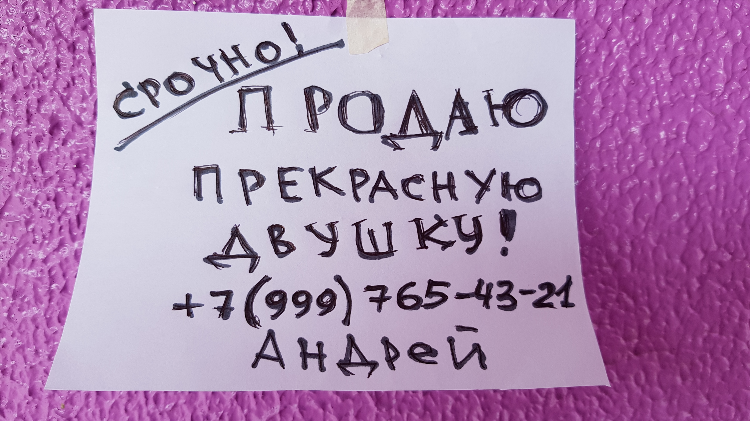 СРОЧНО!
ПРОДАЮ
ПРЕКРАСНУЮ
ДВУШКУ!
+7(999) 765-43-21
АНДРЕЙ